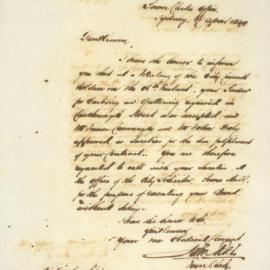 Town Clerks Office
Sydney 17 April 1849
Gentlemen
I have the honor to inform
you that at a Meeting of the City Council
holden on the 16th Instant, your Tender
for Curbing and Guttering required in
Castlereagh Street was accepted and
Mr James Cavanagh and Mr John
approved as Sureties for the due fulfilment
of your Contract. You are therefore
requested to call with your Sureties at
the office of the City Solicitor,
for the purpose of executing your Bond
without delay.
I have the honor to be
Gentlemen
Your mo Obedient Servant
Town Clerk